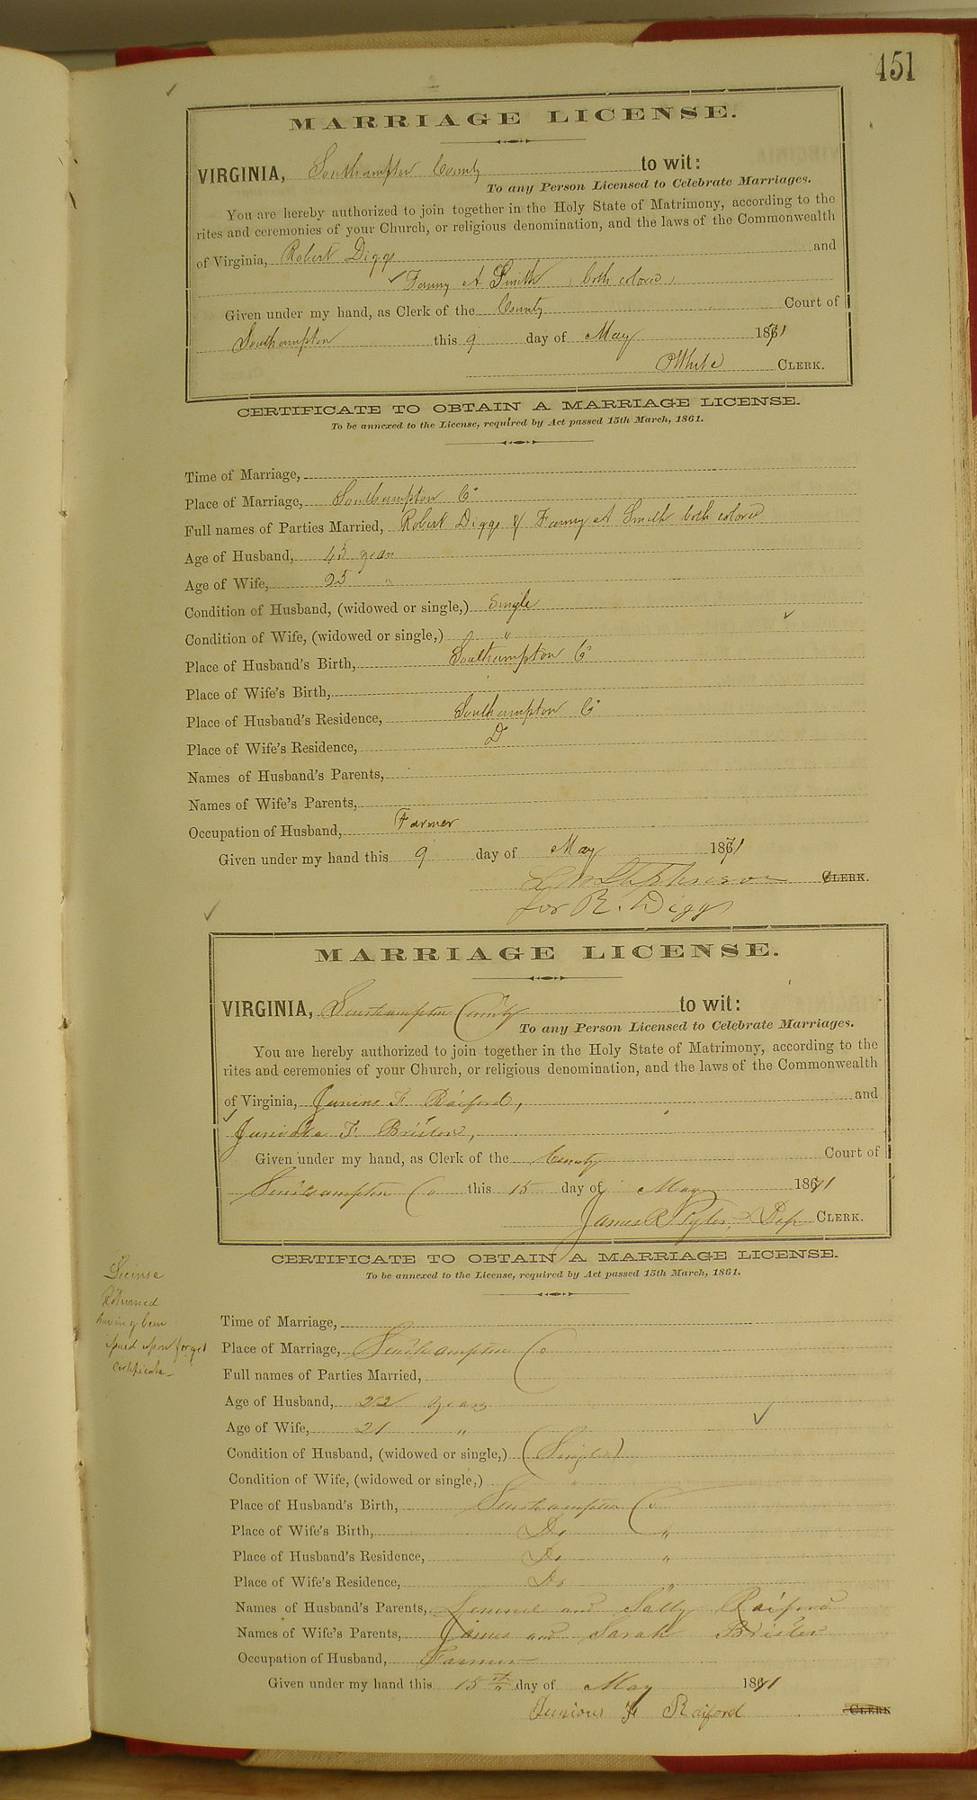 451
MARRIAGE LICENSE.
VIRGINIA, Southampton County to wit:
To any Person Licensed to Celebrate Marriages.
You are hereby authorized to join together in the Holy State of Matrimony, according to the
rites and ceremonies of your Church, or religious denomination, and the laws of the Commonwealth
of Virginia, Robert Diggs and
Fanny A Smith, both colored,
Given under my hand, as Clerk of the County Court of
Southampton this 9 day of May 1871
White CLERK.
CERTIFICATE TO OBTAIN A MARRIAGE LICENSE.
To be annexed to the License, required by Act passed 15th March, 1861.
Time of Marriage,
Place of Marriage, Southampton Co
Full names of Parties Married, Robert Diggs & Fanny A Smith both colored
Age of Husband, 43 years
Age of Wife, 25 "
Condition of Husband, (widowed or single,) Single
Condition of Wife, (widowed or single,) "
Place of Husband's Birth, Southampton Co
Place of Wife's Birth,
Place of Husband's Residence, Southampton Co
Place of Wife's Residence, D
Names of Husband's Parents,
Names of Wife's Parents,
Occupation of Husband, Farmer
Given under my hand this 9 day of May 1871
Stephenson CLERK.
for R. Diggs
MARRIAGE LICENSE.
VIRGINIA, Southampton County to wit:
To any Person Licensed to Celebrate Marriages.
You are hereby authorized to join together in the Holy State of Matrimony, according to the
rites and ceremonies of your Church, or religious denomination, and the laws of the Commonwealth
of Virginia, F. Raiford, and
F. Brister,
Given under my hand, as Clerk of the County Court of
Southampton Co this 15 day of May 1871
James R Tyler, Dep CLERK.
CERTIFICATE TO OBTAIN A MARRIAGE LICENSE.
To be annexed to the License, required by Act passed 15th March, 1861.
License
Returned
having been
issued upon forged
certificate
Time of Marriage,
Place of Marriage, Southampton Co
Full names of Parties Married,
Age of Husband, 22 years
Age of Wife, 21 "
Condition of Husband, (widowed or single,) (Single)
Condition of Wife, (widowed or single,)
Place of Husband's Birth, Southampton Co
Place of Wife's Birth, Do "
Place of Husband's Residence, Do "
Place of Wife's Residence, Do "
Names of Husband's Parents, Lemuel and Sally Raiford
Names of Wife's Parents, James and Sarah Brister
Occupation of Husband, Farmer
Given under my hand this 15th day of May 1871
Junious F Raiford CLERK